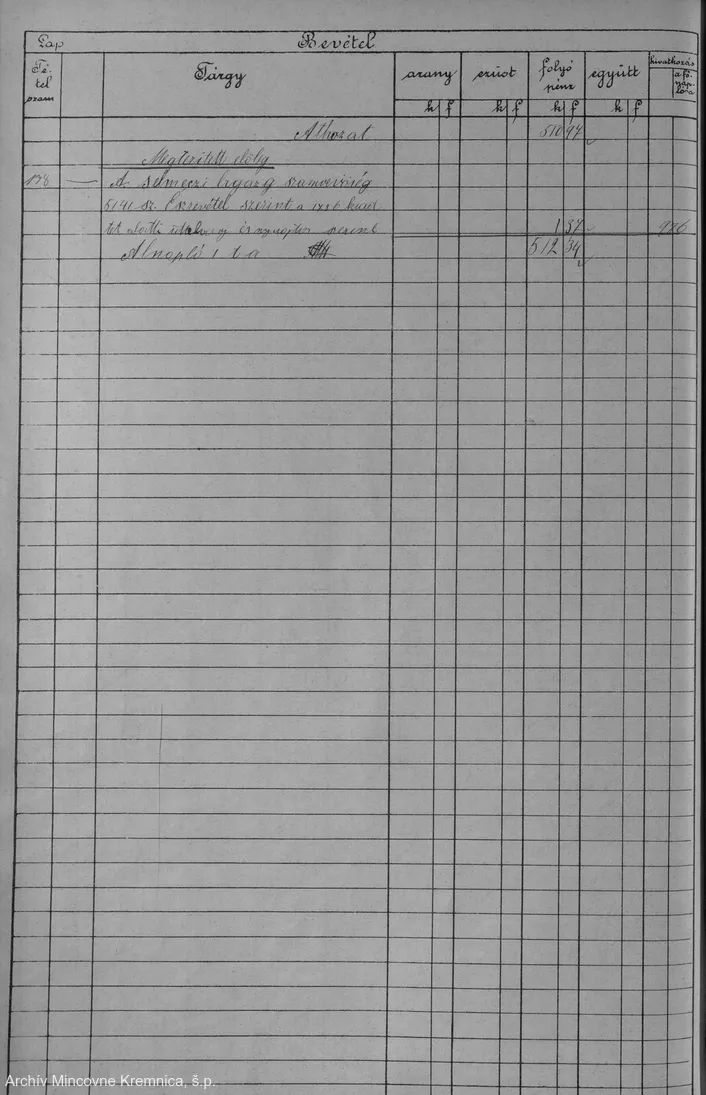 Lap Bevétel
Té-
tel
szám
Tárgy
arany ezüst folyó
pénz együtt hivatkozás
a fő-
nap-
lóra
k f k f k f k f
Áthozat 510 97
Megtérített előly
198 — A selmeczi bgazg számvevőség
5141 sz. szerint a 1736
szerint 1 37 976
Alnapló 1 t a 512 34
Archív Mincovne Kremnica, š.p.